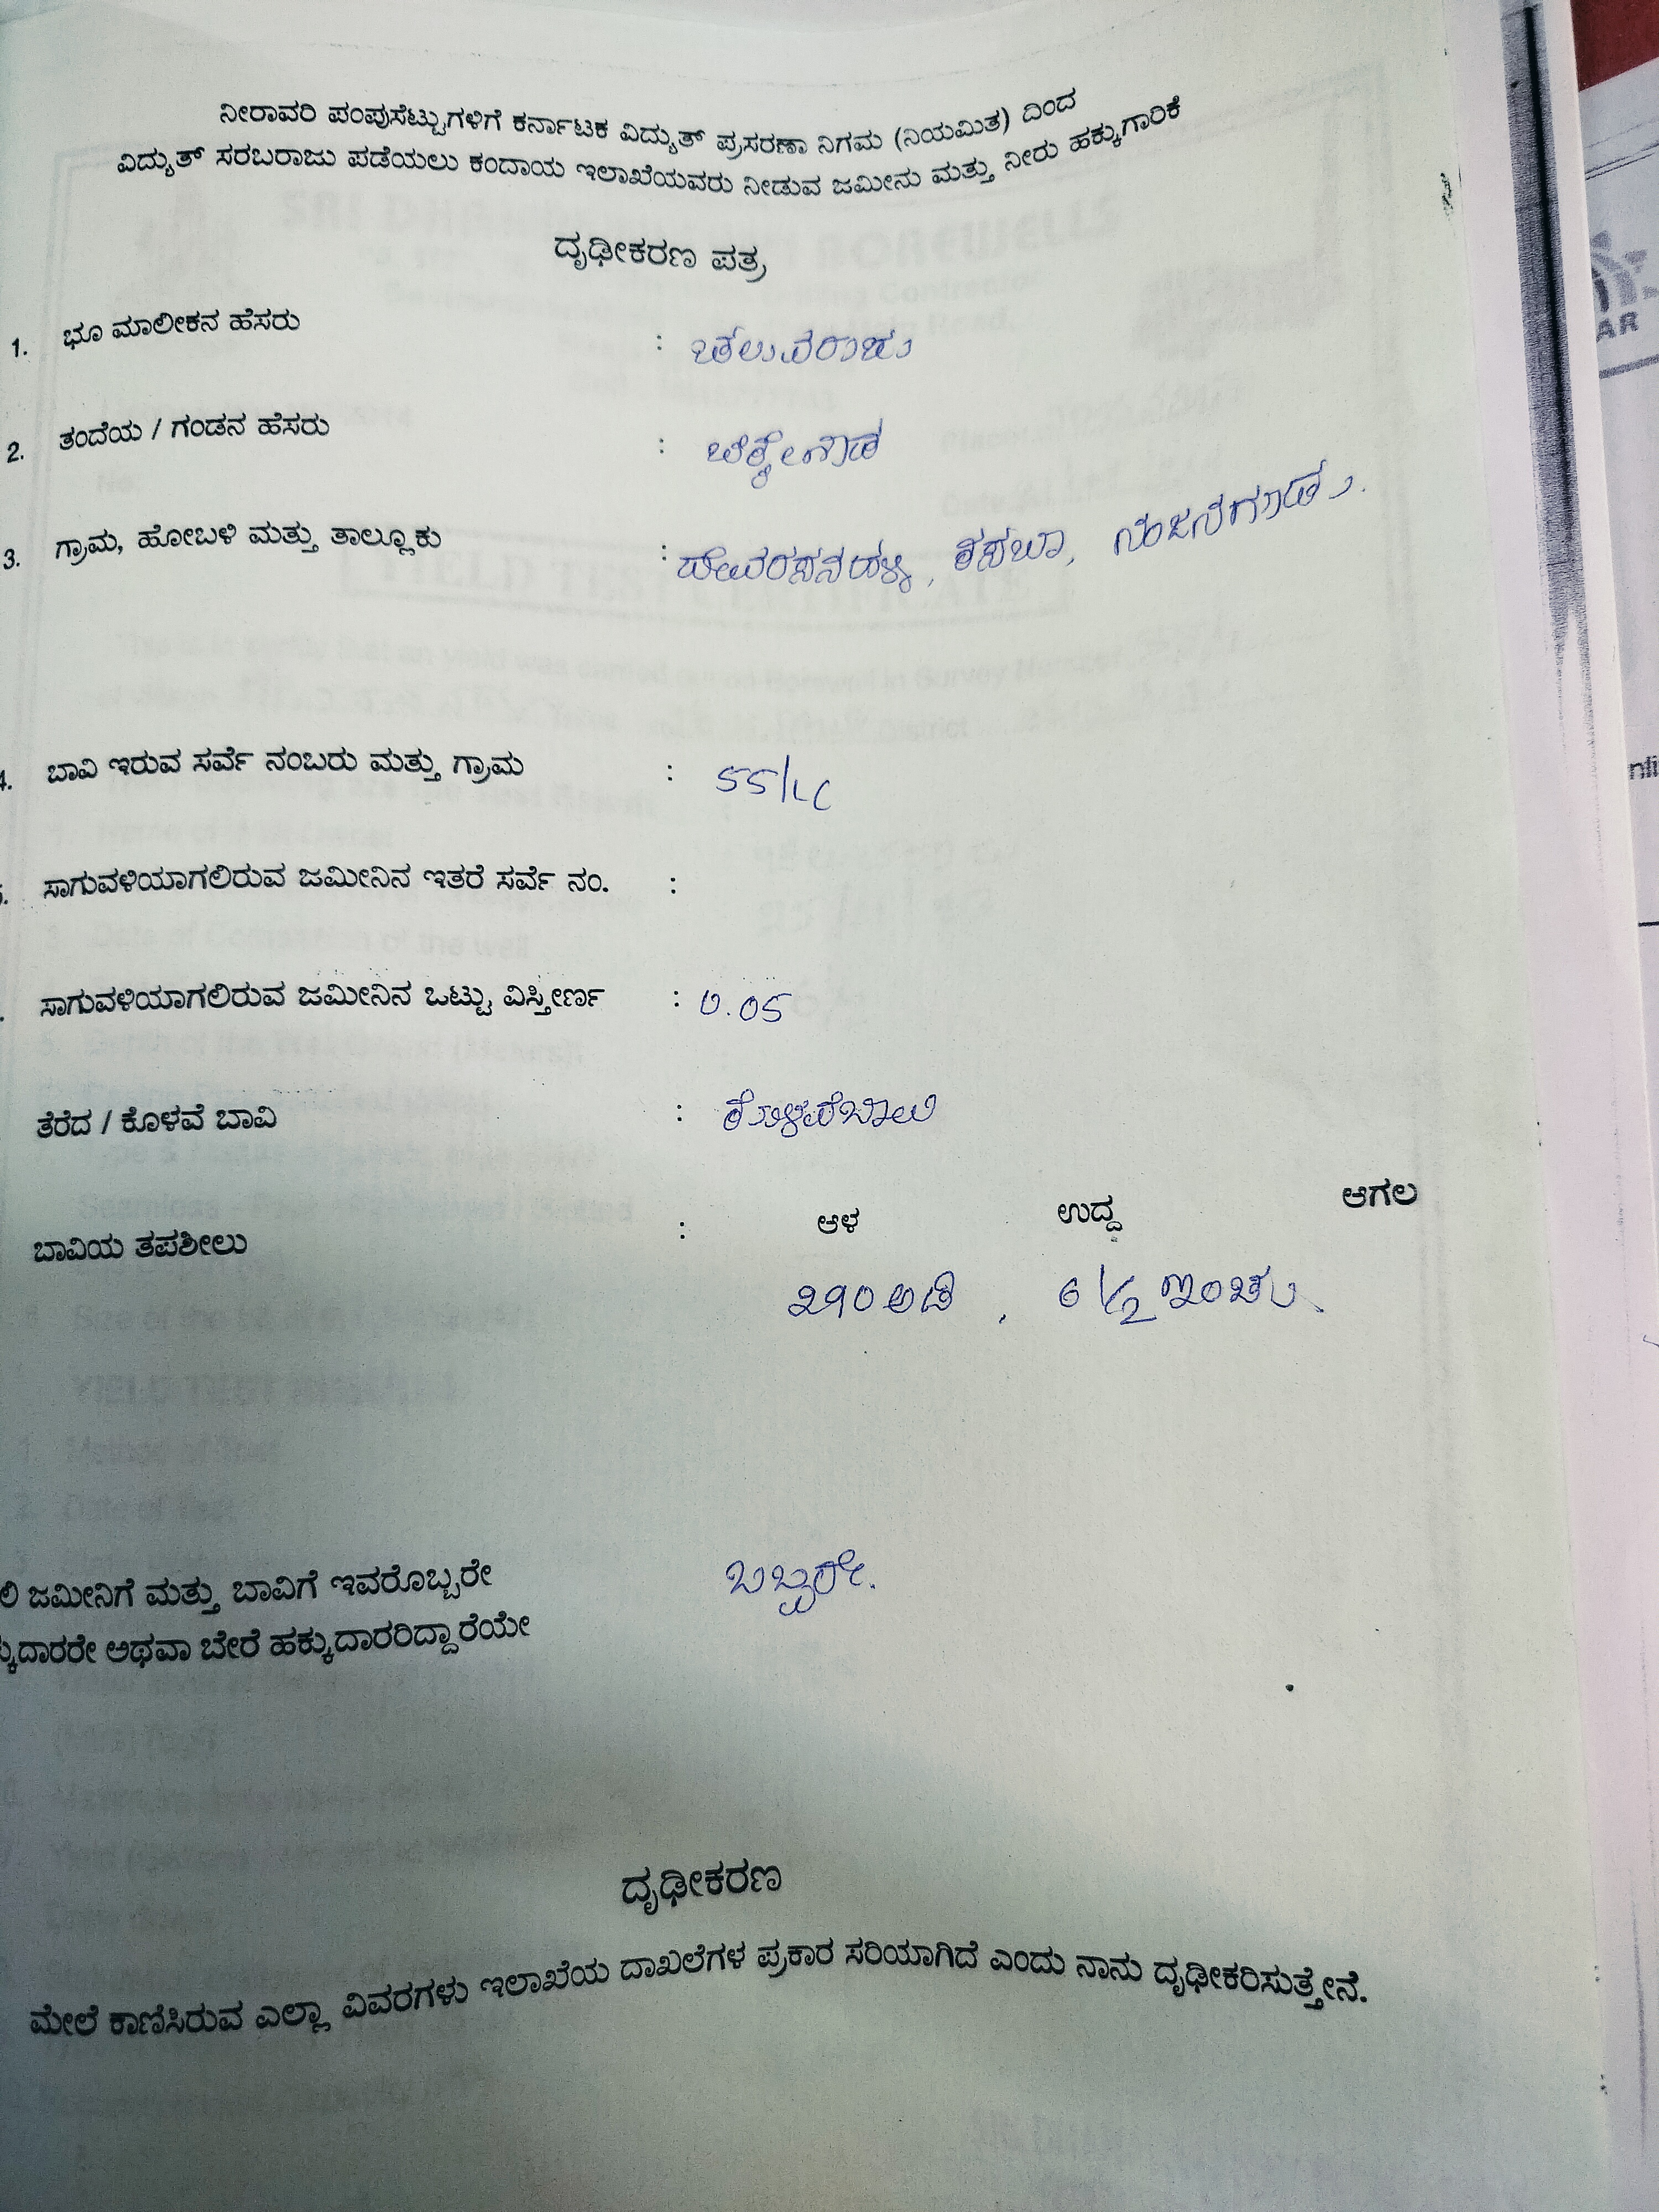 ನೀರಾವರಿ ಪಂಪುಸೆಟ್ಟುಗಳಿಗೆ ಕರ್ನಾಟಕ ವಿದ್ಯುತ್ ಪ್ರಸರಣಾ ನಿಗಮ (ನಿಯಮಿತ) ದಿಂದ
ವಿದ್ಯುತ್ ಸರಬರಾಜು ಪಡೆಯಲು ಕಂದಾಯ ಇಲಾಖೆಯವರು ನೀಡುವ ಜಮೀನು ಮತ್ತು ನೀರು ಹಕ್ಕುಗಾರಿಕೆ
ದೃಢೀಕರಣ ಪತ್ರ
1. ಭೂ ಮಾಲೀಕನ ಹೆಸರು : ಚೆಲುವರಾಜು
2. ತಂದೆಯ / ಗಂಡನ ಹೆಸರು : ಚಿಕ್ಕೇಗೌಡ
3. ಗ್ರಾಮ, ಹೋಬಳಿ ಮತ್ತು ತಾಲ್ಲೂಕು : ದೇವರಸನಹಳ್ಳಿ, ಕಸಬಾ, ನಂಜನಗೂಡು.
4. ಬಾವಿ ಇರುವ ಸರ್ವೆ ನಂಬರು ಮತ್ತು ಗ್ರಾಮ : 55/
ಸಾಗುವಳಿಯಾಗಲಿರುವ ಜಮೀನಿನ ಇತರೆ ಸರ್ವೆ ನಂ. :
ಸಾಗುವಳಿಯಾಗಲಿರುವ ಜಮೀನಿನ ಒಟ್ಟು ವಿಸ್ತೀರ್ಣ : 0.05
ತೆರೆದ / ಕೊಳವೆ ಬಾವಿ : ಕೊಳವೆಬಾವಿ
ಬಾವಿಯ ತಪಶೀಲು : ಆಳ ಉದ್ದ ಆಗಲ
290 ಅಡಿ , 6 1/2 ಇಂಚು.
ಲಿ ಜಮೀನಿಗೆ ಮತ್ತು ಬಾವಿಗೆ ಇವರೊಬ್ಬರೇ ಒಬ್ಬರೇ.
ಕ್ಕುದಾರರೇ ಅಥವಾ ಬೇರೆ ಹಕ್ಕುದಾರರಿದ್ದಾರೆಯೇ
ದೃಢೀಕರಣ
ಮೇಲೆ ಕಾಣಿಸಿರುವ ಎಲ್ಲಾ ವಿವರಗಳು ಇಲಾಖೆಯ ದಾಖಲೆಗಳ ಪ್ರಕಾರ ಸರಿಯಾಗಿದೆ ಎಂದು ನಾನು ದೃಢೀಕರಿಸುತ್ತೇನೆ.